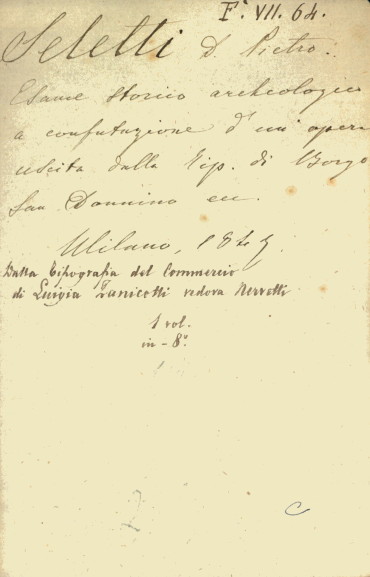 F. VII. 64.
Seletti D. Pietro.
Esame storico archeologico
a confutazione d'un' opera
uscita dalla Tip. di Borgo
San Donnino ecc.
Milano,
Dalla Tipografia del Commercio
di Luigia vedova Nervetti
1 vol.
in - 8°
C